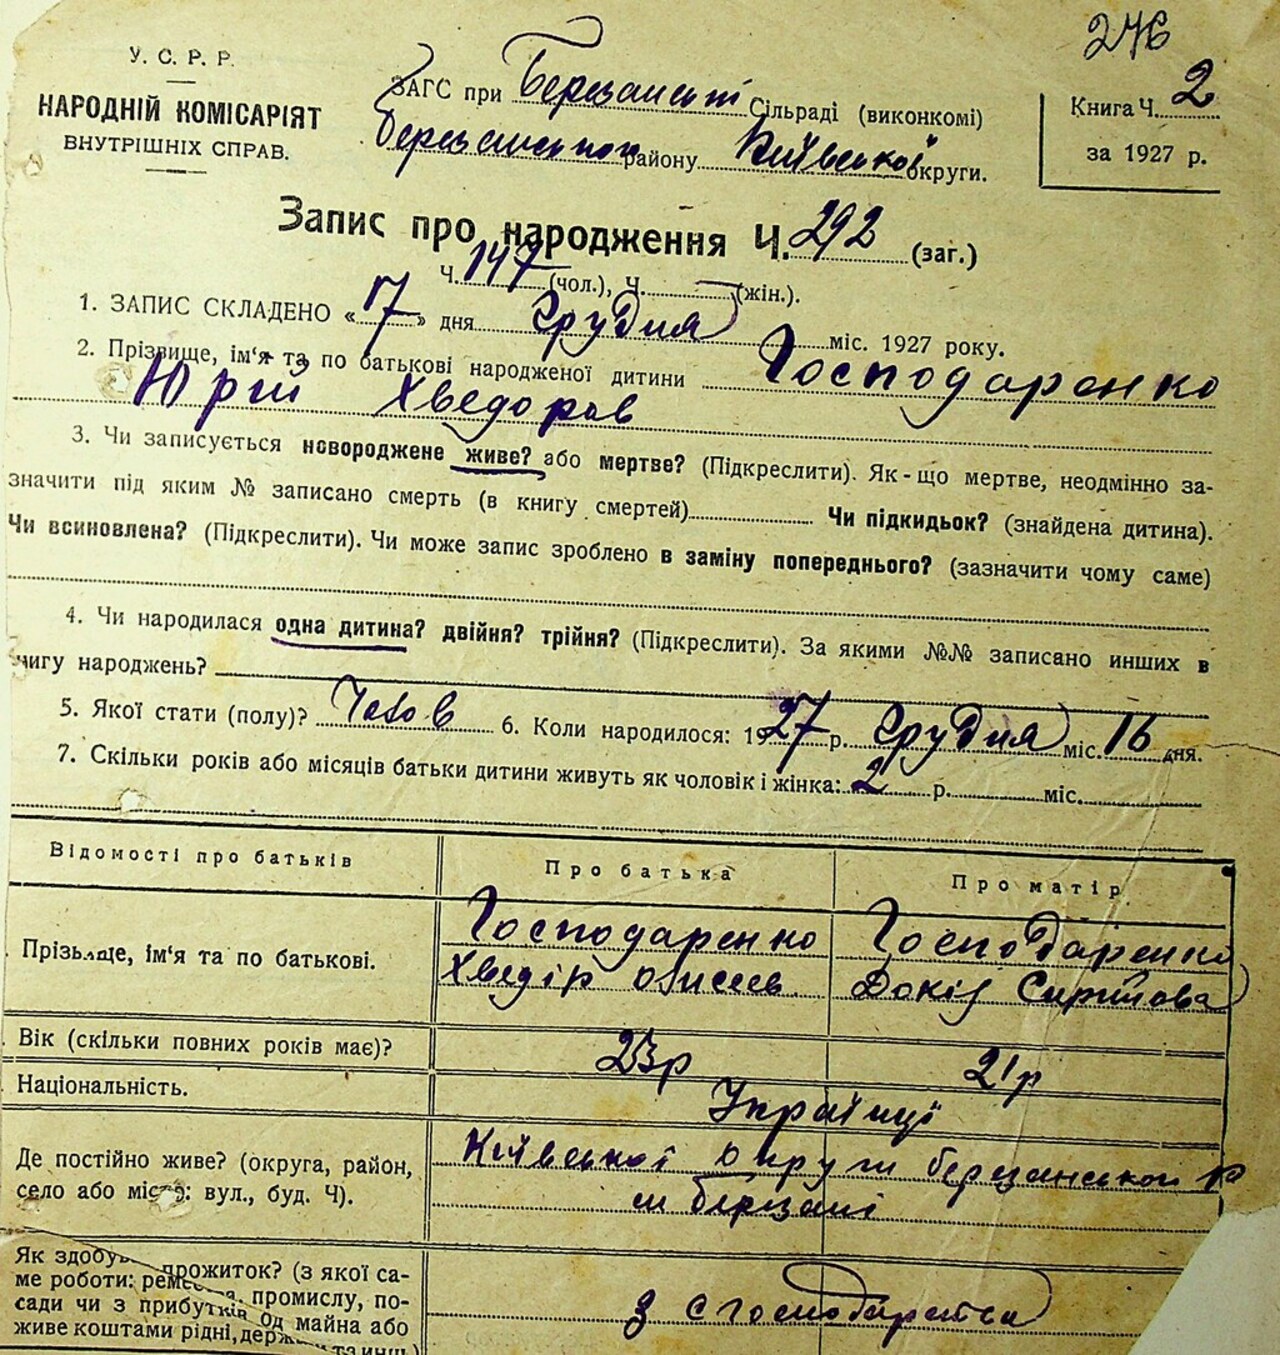 276
У. С. Р. Р.
НАРОДНІЙ КОМІСАРІЯТ
ВНУТРІШНІХ СПРАВ.
ЗАГС при Березанські Сільраді (виконкомі)
Березанського району Київської округи.
Книга Ч. 2
за 1927 р.
Запис про народження Ч. 292 (заг.)
Ч. 147 (чол.), Ч. (жін.).
1. ЗАПИС СКЛАДЕНО «17» дня Грудня міс. 1927 року.
2. Прізвище, ім'я та по батькові народженої дитини Господаренко
Юрій Хведоров
3. Чи записується новороджене живе? або мертве? (Підкреслити). Як-що мертве, неодмінно за-
значити під яким № записано смерть (в книгу смертей) Чи підкидьок? (знайдена дитина).
Чи всиновлена? (Підкреслити). Чи може запис зроблено в заміну попереднього? (зазначити чому саме)
4. Чи народилася одна дитина? двійня? трійня? (Підкреслити). За якими №№ записано инших в
книгу народжень?
5. Якої стати (полу)? Чолов 6. Коли народилося: 1927 р. Грудня міс. 16 дня.
7. Скільки років або місяців батьки дитини живуть як чоловік і жінка: 2 р. міс.
Відомості про батьків Про батька Про матір
Прізьвще, ім'я та по батькові. Господаренко Господаренко
Хведір Овисеев Докія
Вік (скільки повних років має)? 23р 21р
Національність. Українці
Де постійно живе? (округа, район, Київської Округи березанського р
село або місто: вул., буд. Ч). м березані
Як здобув прожиток? (з якої са-
ме роботи: ремества, промислу, по-
сади чи з прибутків од майна або з господарства
живе коштами рідні, держ
та инш.)